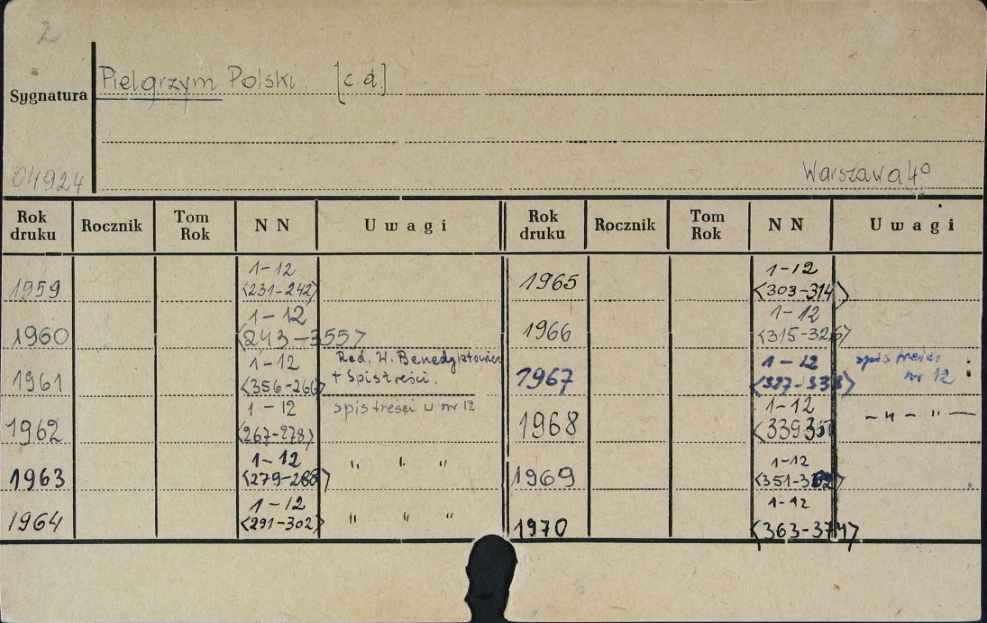 2
Sygnatura
Pielgrzym Polski [c.d]
04924
Warszawa 4°
Rok druku Rocznik Tom Rok N N Uwagi Rok druku Rocznik Tom Rok N N Uwagi
1959 1-12 <231-242> 1965 1-12 <303-314>
1960 1-12 <243-3557> 1966 1-12 <315-326>
1961 1-12 <356-266> Red. W. Benedyktowicz + Spis treści. 1967 1-12 <327-338> spis treści nr 12
1962 1-12 <267-278> spis treści w nr 12 1968 1-12 <339-350> - " - " -
1963 1-12 <279-288> " " " 1969 1-12 <351-362>
1964 1-12 <291-302> " " " 1970 1-12 <363-374>